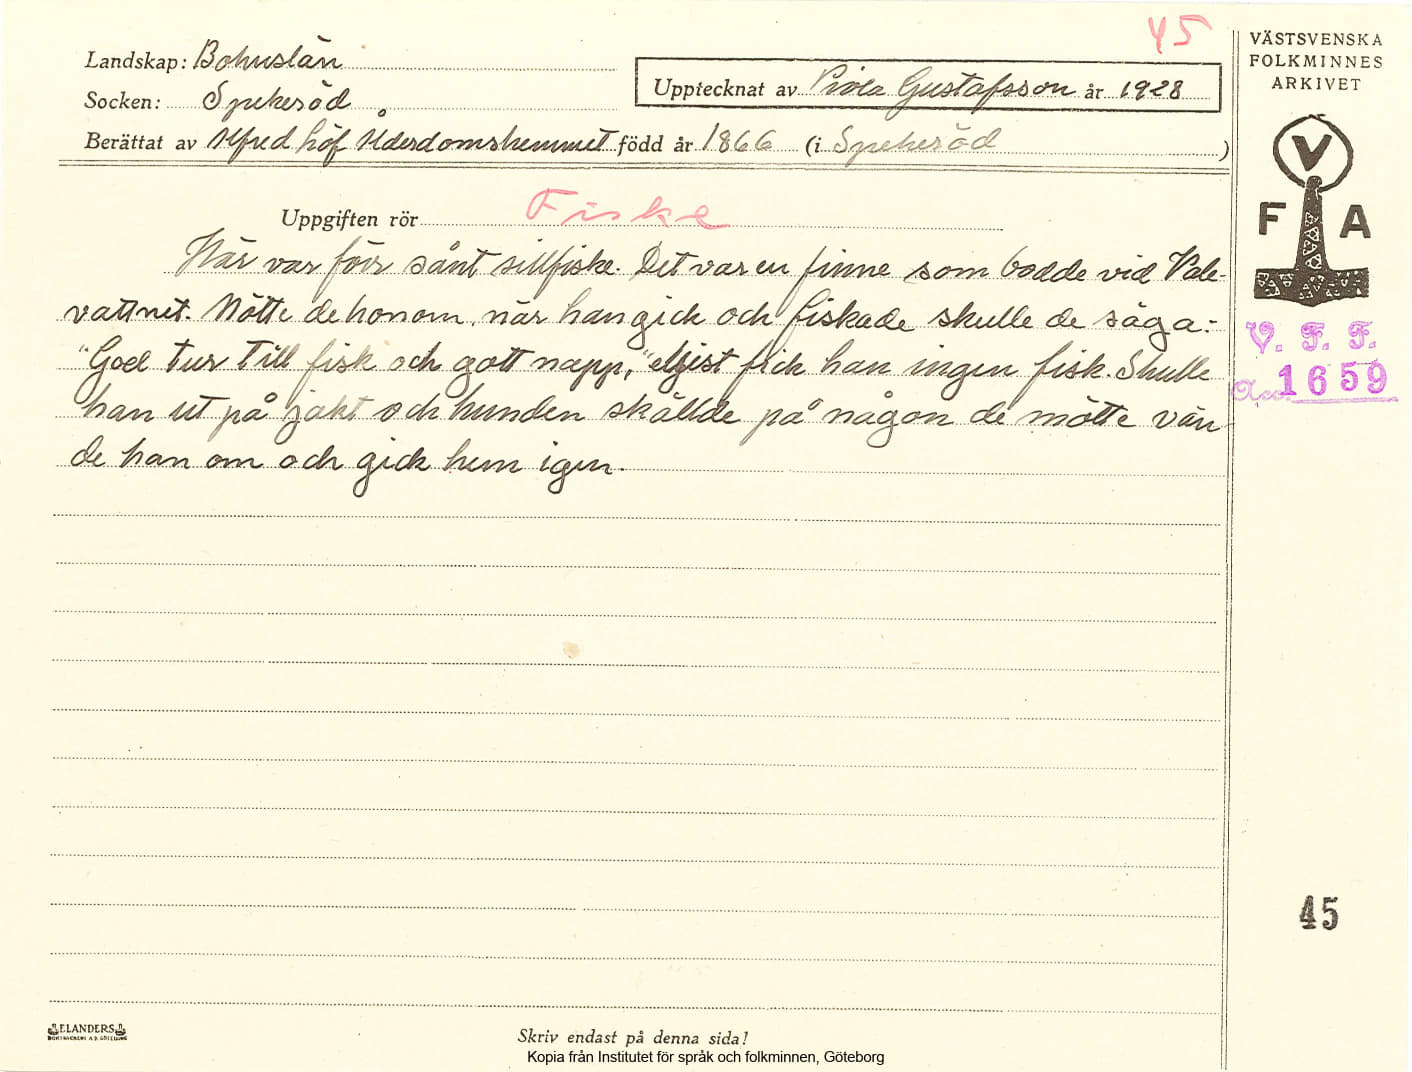 45
Landskap: Bohuslän
Socken: Spekeröd
Upptecknat av Viola Gustafsson år 1928
Berättat av Alfred Löf Ålderdomshemmet född år 1866 (i Spekeröd)
Uppgiften rör Fiske
Här var förr sånt sillfiske. Det var en finne som bodde vid Vale-
vattnet. Mötte de honom när han gick och fiskade skulle de säga:
"God tur till fisk och gott napp," eljest fick han ingen fisk. Skulle
han ut på jakt och hunden skällde på någon de mötte vän
de han om och gick hem igen.
VÄSTSVENSKA
FOLKMINNES
ARKIVET
V
F A
V. F. F.
Acc. 1659
45
ELANDERS
Skriv endast på denna sida!
Kopia från Institutet för språk och folkminnen, Göteborg